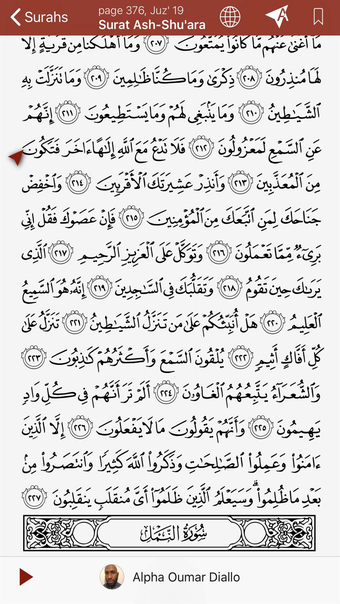 Surahs
page 376, Juz' 19
Surat Ash-Shu'ara
مَآ أَغْنَىٰ عَنْهُم مَّا كَانُوا۟ يُمَتَّعُونَ ٢٠٧ وَمَآ أَهْلَكْنَا مِن قَرْيَةٍ إِلَّا
لَهَا مُنذِرُونَ ٢٠٨ ذِكْرَىٰ وَمَا كُنَّا ظَـٰلِمِينَ ٢٠٩ وَمَا تَنَزَّلَتْ بِهِ
ٱلشَّيَـٰطِينُ ٢١٠ وَمَا يَنۢبَغِى لَهُمْ وَمَا يَسْتَطِيعُونَ ٢١١ إِنَّهُمْ
عَنِ ٱلسَّمْعِ لَمَعْزُولُونَ ٢١٢ فَلَا تَدْعُ مَعَ ٱللَّهِ إِلَـٰهًا ءَاخَرَ فَتَكُونَ
مِنَ ٱلْمُعَذَّبِينَ ٢١٣ وَأَنذِرْ عَشِيرَتَكَ ٱلْأَقْرَبِينَ ٢١٤ وَٱخْفِضْ
جَنَاحَكَ لِمَنِ ٱتَّبَعَكَ مِنَ ٱلْمُؤْمِنِينَ ٢١٥ فَإِنْ عَصَوْكَ فَقُلْ إِنِّى
بَرِىٓءٌ مِّمَّا تَعْمَلُونَ ٢١٦ وَتَوَكَّلْ عَلَى ٱلْعَزِيزِ ٱلرَّحِيمِ ٢١٧ ٱلَّذِى
يَرَىٰكَ حِينَ تَقُومُ ٢١٨ وَتَقَلُّبَكَ فِى ٱلسَّـٰجِدِينَ ٢١٩ إِنَّهُۥ هُوَ ٱلسَّمِيعُ
ٱلْعَلِيمُ ٢٢٠ هَلْ أُنَبِّئُكُمْ عَلَىٰ مَن تَنَزَّلُ ٱلشَّيَـٰطِينُ ٢٢١ تَنَزَّلُ عَلَىٰ
كُلِّ أَفَّاكٍ أَثِيمٍ ٢٢٢ يُلْقُونَ ٱلسَّمْعَ وَأَكْثَرُهُمْ كَـٰذِبُونَ ٢٢٣
وَٱلشُّعَرَآءُ يَتَّبِعُهُمُ ٱلْغَاوُۥنَ ٢٢٤ أَلَمْ تَرَ أَنَّهُمْ فِى كُلِّ وَادٍ
يَهِيمُونَ ٢٢٥ وَأَنَّهُمْ يَقُولُونَ مَا لَا يَفْعَلُونَ ٢٢٦ إِلَّا ٱلَّذِينَ
ءَامَنُوا۟ وَعَمِلُوا۟ ٱلصَّـٰلِحَـٰتِ وَذَكَرُوا۟ ٱللَّهَ كَثِيرًا وَٱنتَصَرُوا۟ مِنۢ
بَعْدِ مَا ظُلِمُوا۟ ۗ وَسَيَعْلَمُ ٱلَّذِينَ ظَلَمُوٓا۟ أَىَّ مُنقَلَبٍ يَنقَلِبُونَ ٢٢٧
سُورَةُ النَّمْلِ
Alpha Oumar Diallo